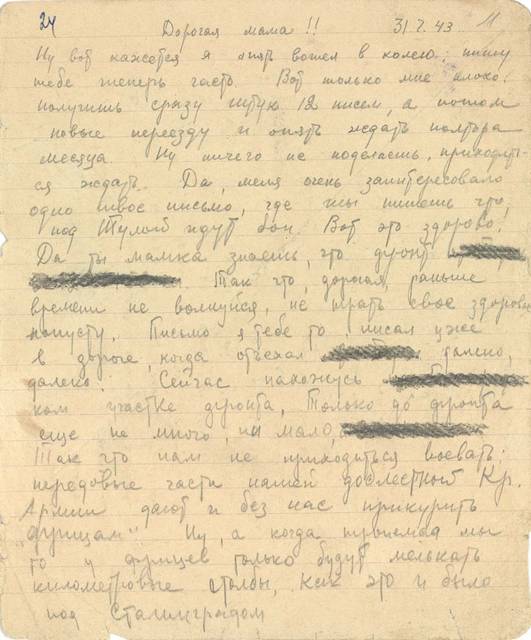 24 Дорогая мама!! 31.7.43 11
Ну вот кажется я опять вошел в колею: пишу
тебе теперь часто. Вот только мне плохо:
получишь сразу штук 12 писем, а потом
новые переезду и опять ждать полтора
месяца. Ну ничего не поделаешь, приходить-
ся ждать. Да, меня очень заинтересовало
одно твое письмо, где ты пишешь что
под Тулой идут бои. Вот это здорово!
Да ты мамка знаешь, что фронт
Так что, дорогая, раньше
времени не волнуйся, не трать свое здоровье
попусту. Письмо я тебе то писал уже
в дороге, когда отъехал далеко,
далеко. Сейчас нахожусь
ком участке фронта, только до фронта
еще не много, ни мало,
Так что нам не приходиться воевать:
передовые части нашей доблестной Кр.
Армии дают и без нас прикурить
"фрицам" Ну, а когда приедем мы
то у фрицев только будут мелькать
километровые столбы, как это и было
под Сталинградом